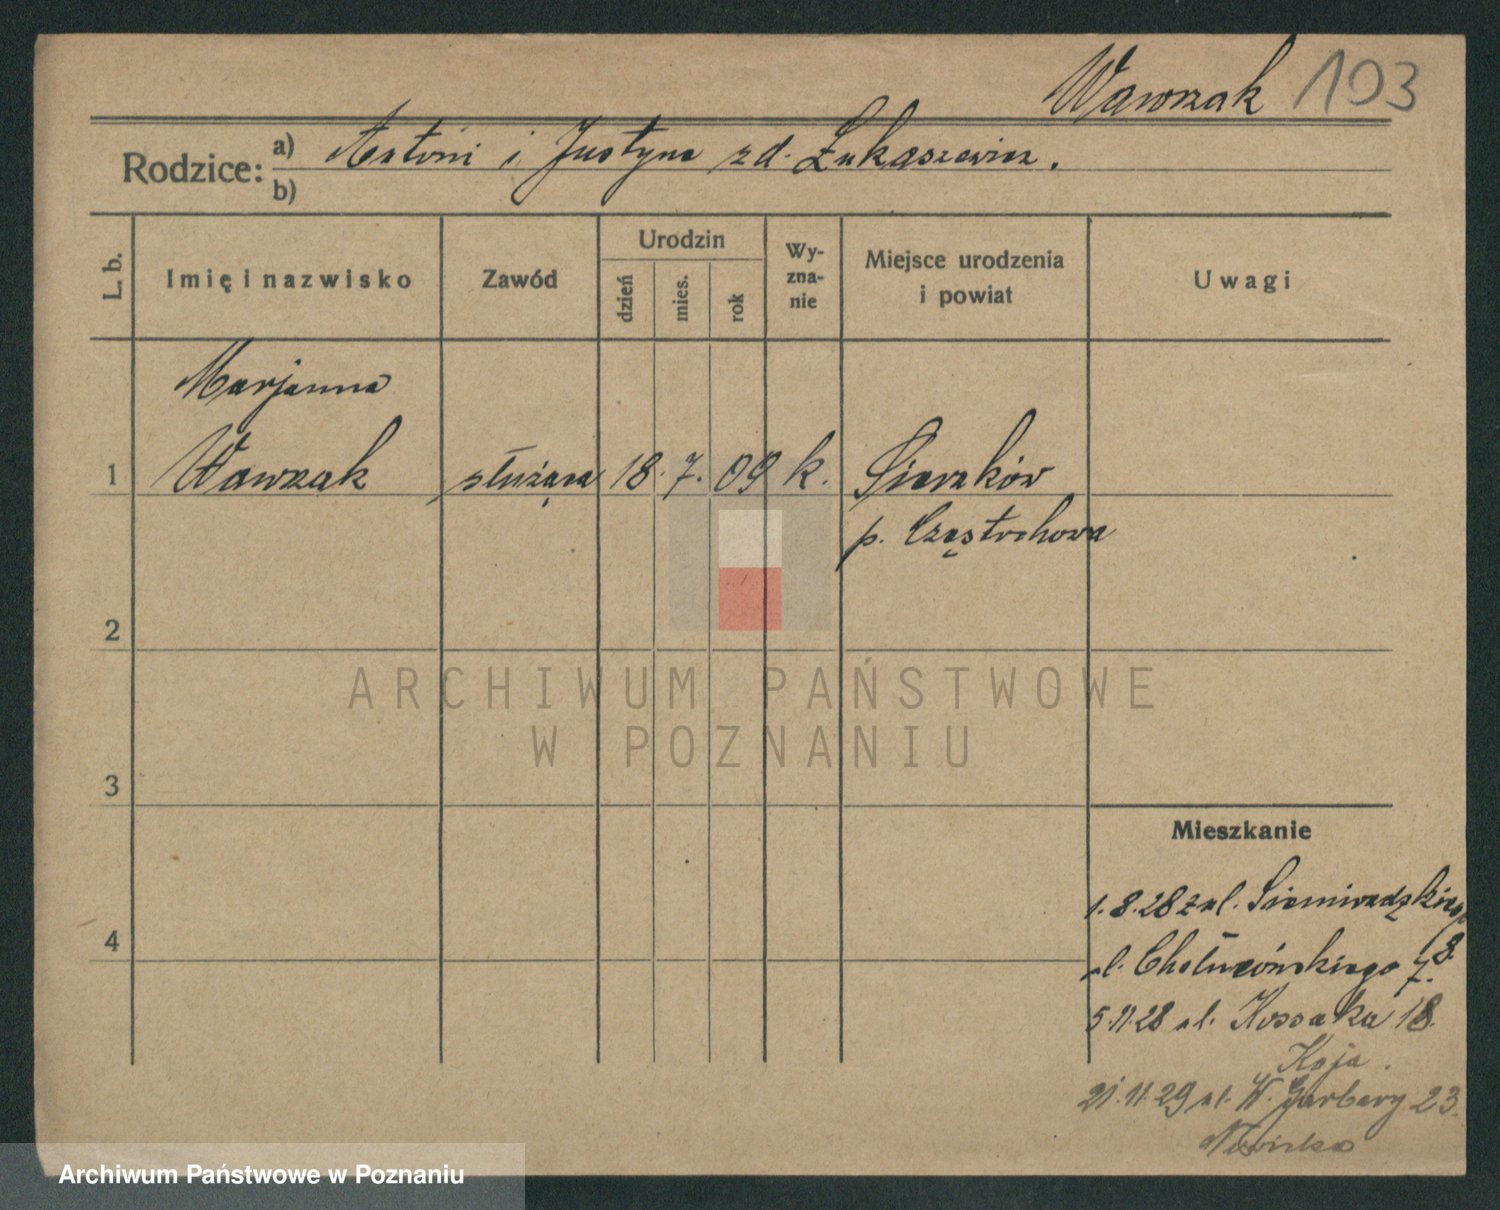 Wawrzak 103
Rodzice: a) Antoni i Justyna zd. Łukaszewicz.
b)
L. b.
Imię i nazwisko
Zawód
Urodzin
dzień
mies.
rok
Wy-
zna-
nie
Miejsce urodzenia
i powiat
Uwagi
Marjanna
1 Wawrzak służąca 18. 7. 09 k.
p. Częstochowa
2
3
4
ARCHIWUM PAŃSTWOWE
W POZNANIU
Mieszkanie
1.8.28 z ul.
ul. 
5.11.28 ul. Kossaka 18.
Kaja.
21.11.29 ul. W. Garbary 23.
Archiwum Państwowe w Poznaniu